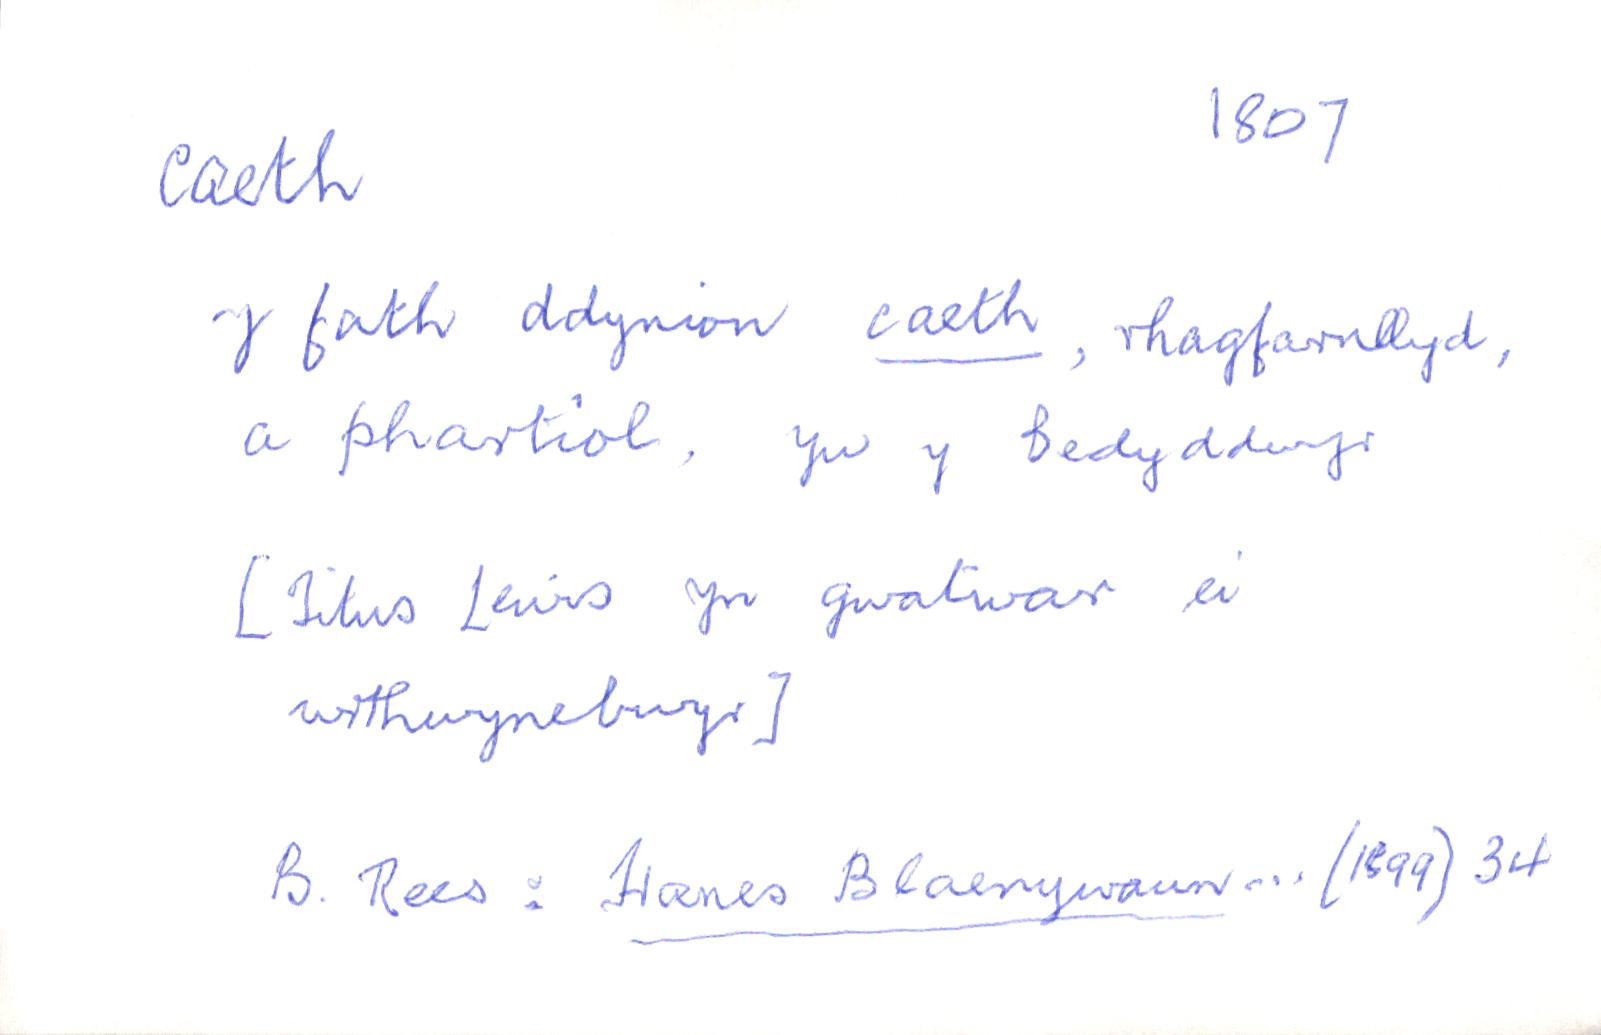 1807
caeth
y fath ddynion caeth, rhagfarnllyd,
a phartiol, yw y Bedyddwyr
[Titus Lewis yn gwatwar ei
wrthwynebwyr]
B. Rees: Hanes Blaenywaun... (1899) 34